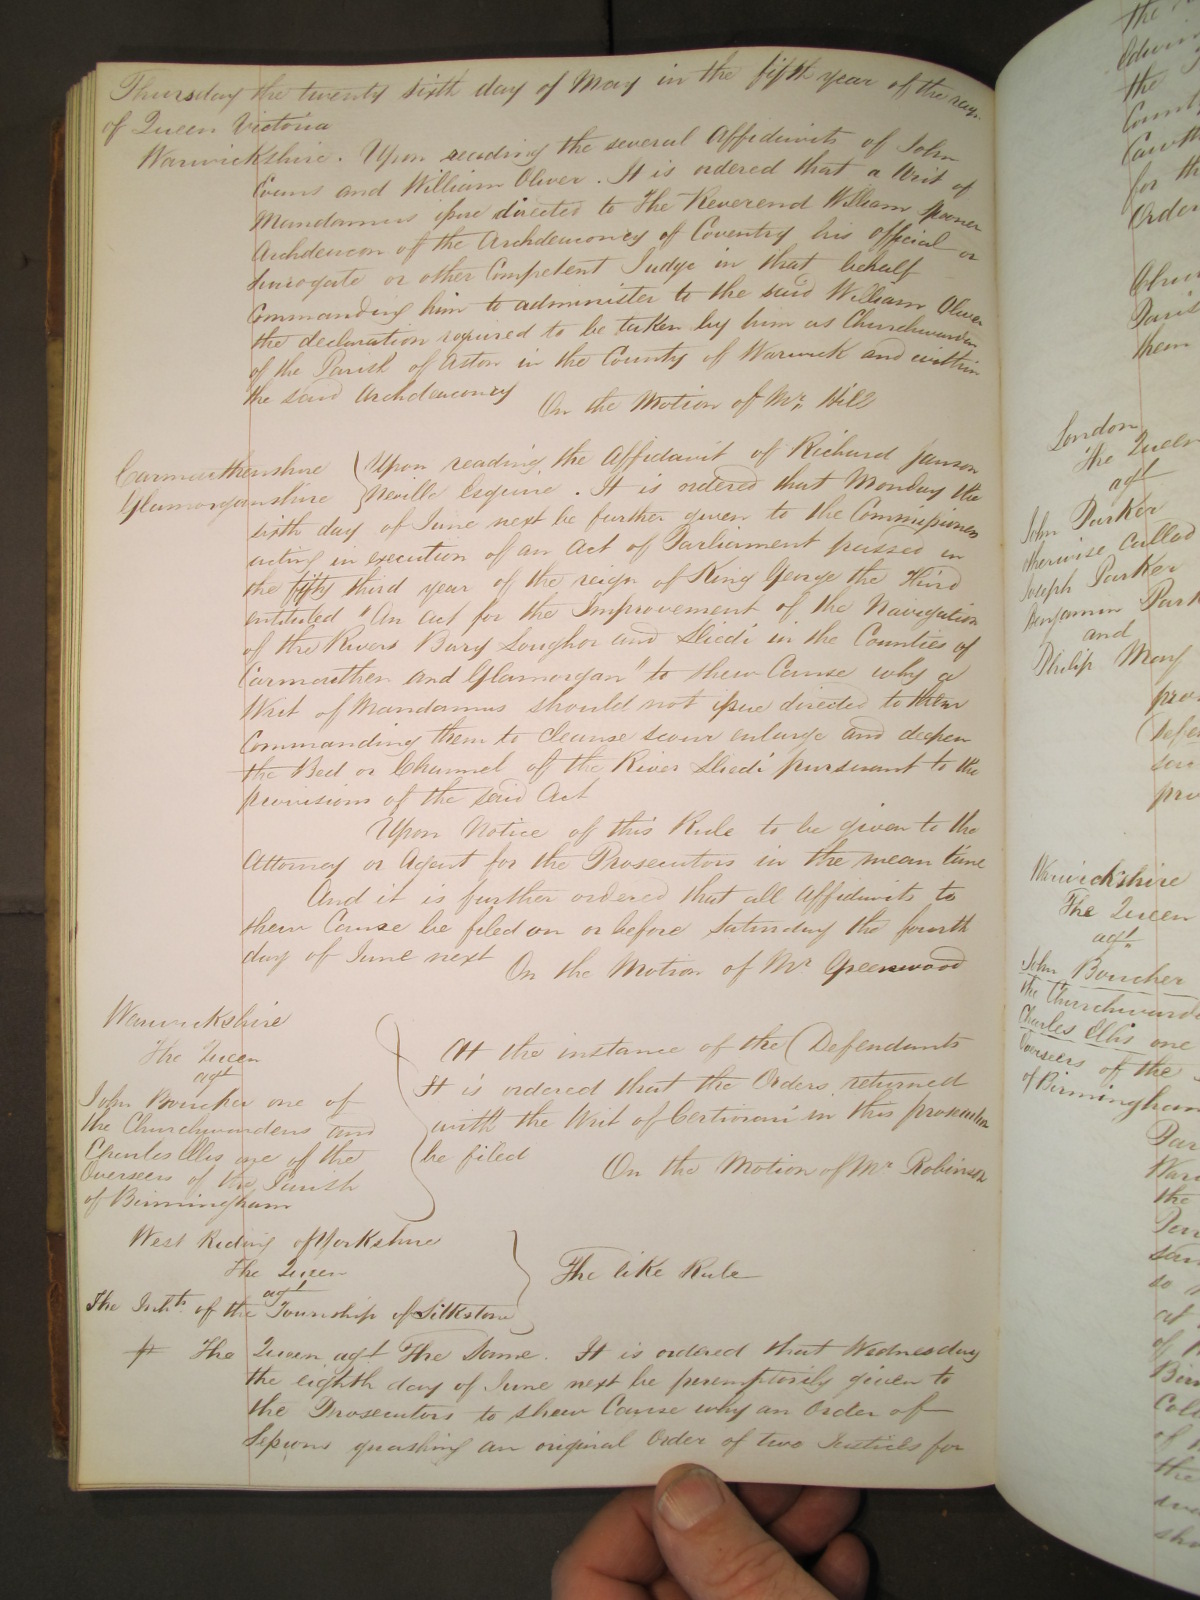 Thursday the twenty sixth day of May in the fifth year of the reign
of Queen Victoria
Warwickshire. Upon reading the several Affidavits of John
Evans and William Oliver. It is ordered that a Writ of
Mandamus issue directed to The Reverend William Spooner
Archdeacon of the Archdeaconry of Coventry his official or
Surrogate or other Competent Judge in that behalf
Commanding him to administer to the said William Oliver
the declaration required to be taken by him as Churchwarden
of the Parish of Aston in the County of Warwick and within
the said Archdeaconry
On the Motion of Mr. Hill
Carmarthenshire
Glamorganshire
Upon reading the Affidavit of Richard Janson
Neville Esquire. It is ordered that Monday the
sixth day of June next be further given to the Commissioners
acting in execution of an Act of Parliament passed in
the fifty third year of the reign of King George the Third
entituled "An act for the Improvement of the Navigation
of the Rivers Bury Loughor and Lliedi in the Counties of
Carmarthen and Glamorgan" to shew Cause why a
Writ of Mandamus should not issue directed to them
Commanding them to cleanse scour enlarge and deepen
the Bed or Channel of the River Lliedi pursuant to the
provisions of the said Act
Upon Notice of this Rule to be given to the
Attorney or Agent for the Prosecutors in the mean time
And it is further ordered that all Affidavits to
shew Cause be filed on or before Saturday the fourth
day of June next
On the Motion of Mr Greenwood
Warwickshire
The Queen
agt
John Boucher one of
the Churchwardens and
Charles Ellis one of the
Overseers of the Parish
of Birmingham
At the instance of the Defendants
It is ordered that the Orders returned
with the Writ of Certiorari in this prosecution
be filed
On the Motion of Mr Robinson
West Riding of Yorkshire
The Queen
agt
The Inhts of the Township of Silkstone
The like Rule
The Queen agt The Same. It is ordered that Wednesday
the eighth day of June next be peremptorily given to
the Prosecutors to shew Cause why an Order of
Sessions quashing an original Order of two Justices for
London
The Queen
agt
John Parker
otherwise called
Joseph Parker
Benjamin
and
Philip May
Warwickshire
The Queen
agt
John Boucher
the
Charles Ellis one
Overseers of the
of Birmingham